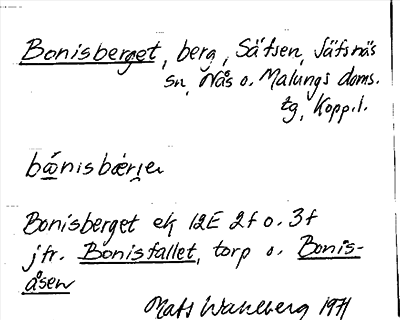 Bonisberget, berg, Säfsen, Säfsnäs
sn, Nås o. Malungs doms.
tg, Kopp.l.
Bonisberget ek 12E 2f o. 3f
jfr. Bonisfallet, torp o. Bonis-
åsen
Mats Wahlberg 1971